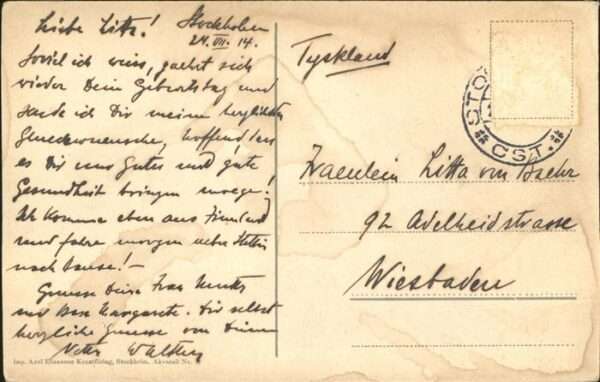 Liebe Litta! Stockholm
24. VII. 14.
Soviel ich weiss, jaehrt sich
wieder Dein Geburtstag und
sende ich Dir meine herzlichsten
Glueckwuensche, hoffend dass
es Dir nur Gutes und gute
Gesundheit bringen moege!
Ich komme eben aus Finnland
und fahre morgen ueber Stettin
nach Hause! -
Gruesse Deine Frau Mutter
und Margarete. Dir selbst
herzliche Gruesse von Deinem
Vetter Walther
Imp. Axel Eliassons Konstförlag, Stockholm. Akvarell No.
Tyskland
STO
CST.
Fraeulein Litta von
92 Adelheidstrasse
Wiesbaden